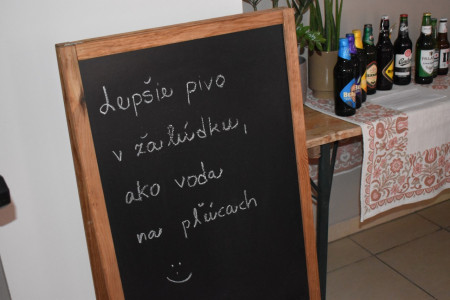 Lepšie pivo
v žalúdku,
ako voda
na pľúcach